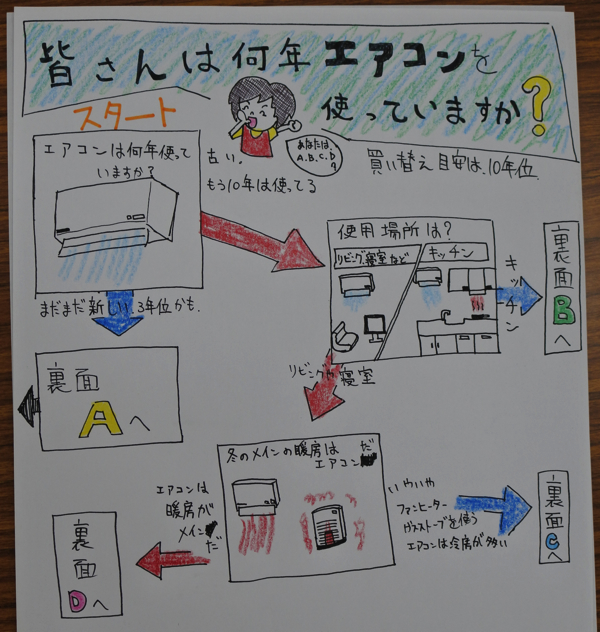 皆さんは何年エアコンを
使っていますか?
スタート
エアコンは何年使って
いますか?
古い。
もう10年は使ってる
あなたは、
A.B.C.D
?
買い替え目安は、10年位
まだまだ新しい。3年位かも。
裏面
Aへ
使用場所は?
リビング寝室など
キッチン
キッチン
裏面Bへ
リビングや寝室
冬のメインの暖房は
エアコンだ
エアコンは
暖房が
メインだ
裏面Dへ
いやいや
ファンヒーター
ガスストーブを使う
エアコンは冷房が多い
裏面Cへ